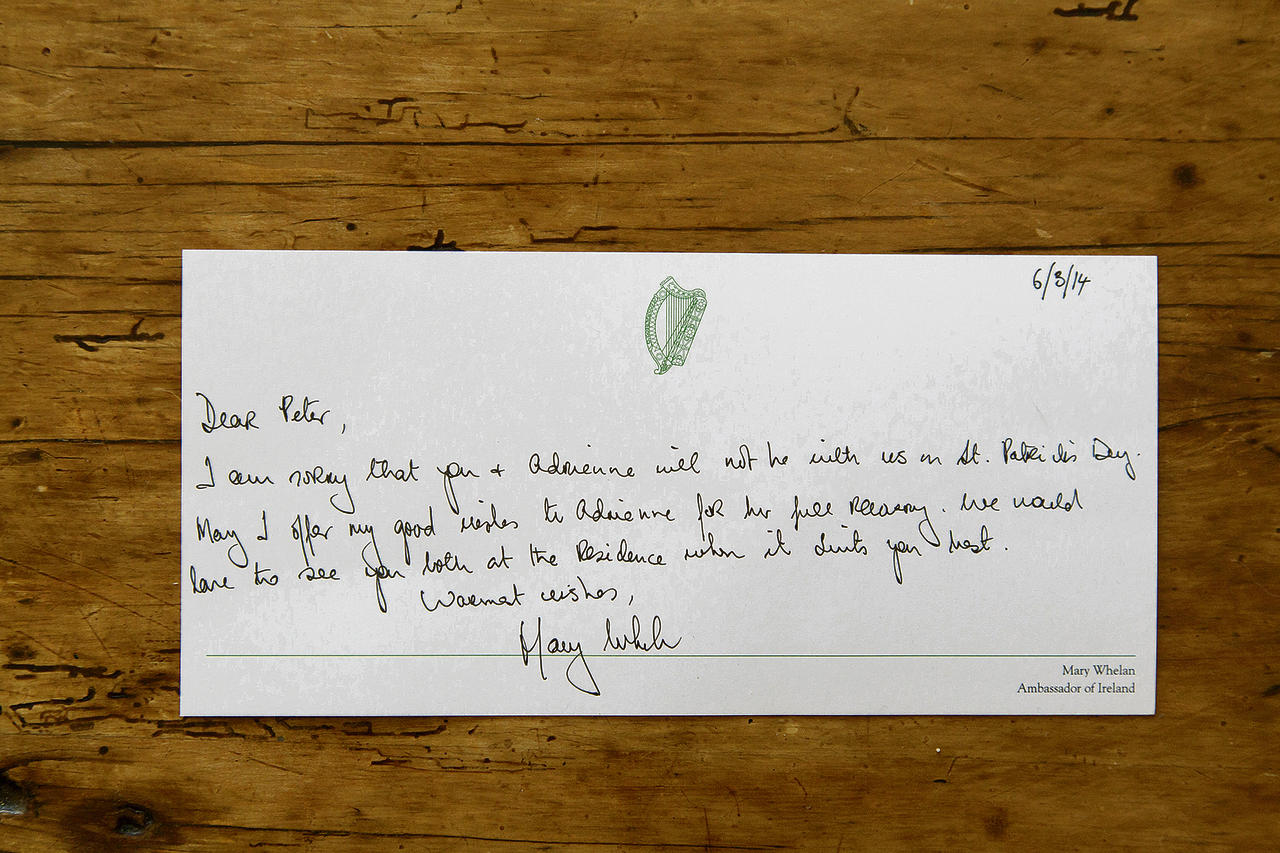 6/3/14
Dear Peter,
I am sorry that you + Adrienne will not be with us on St. Patrick's Day.
May I offer my good wishes to Adrienne for her full recovery. We would
love to see you both at the Residence when it suits you best.
Warmest wishes,
Mary Whelan
Mary Whelan
Ambassador of Ireland